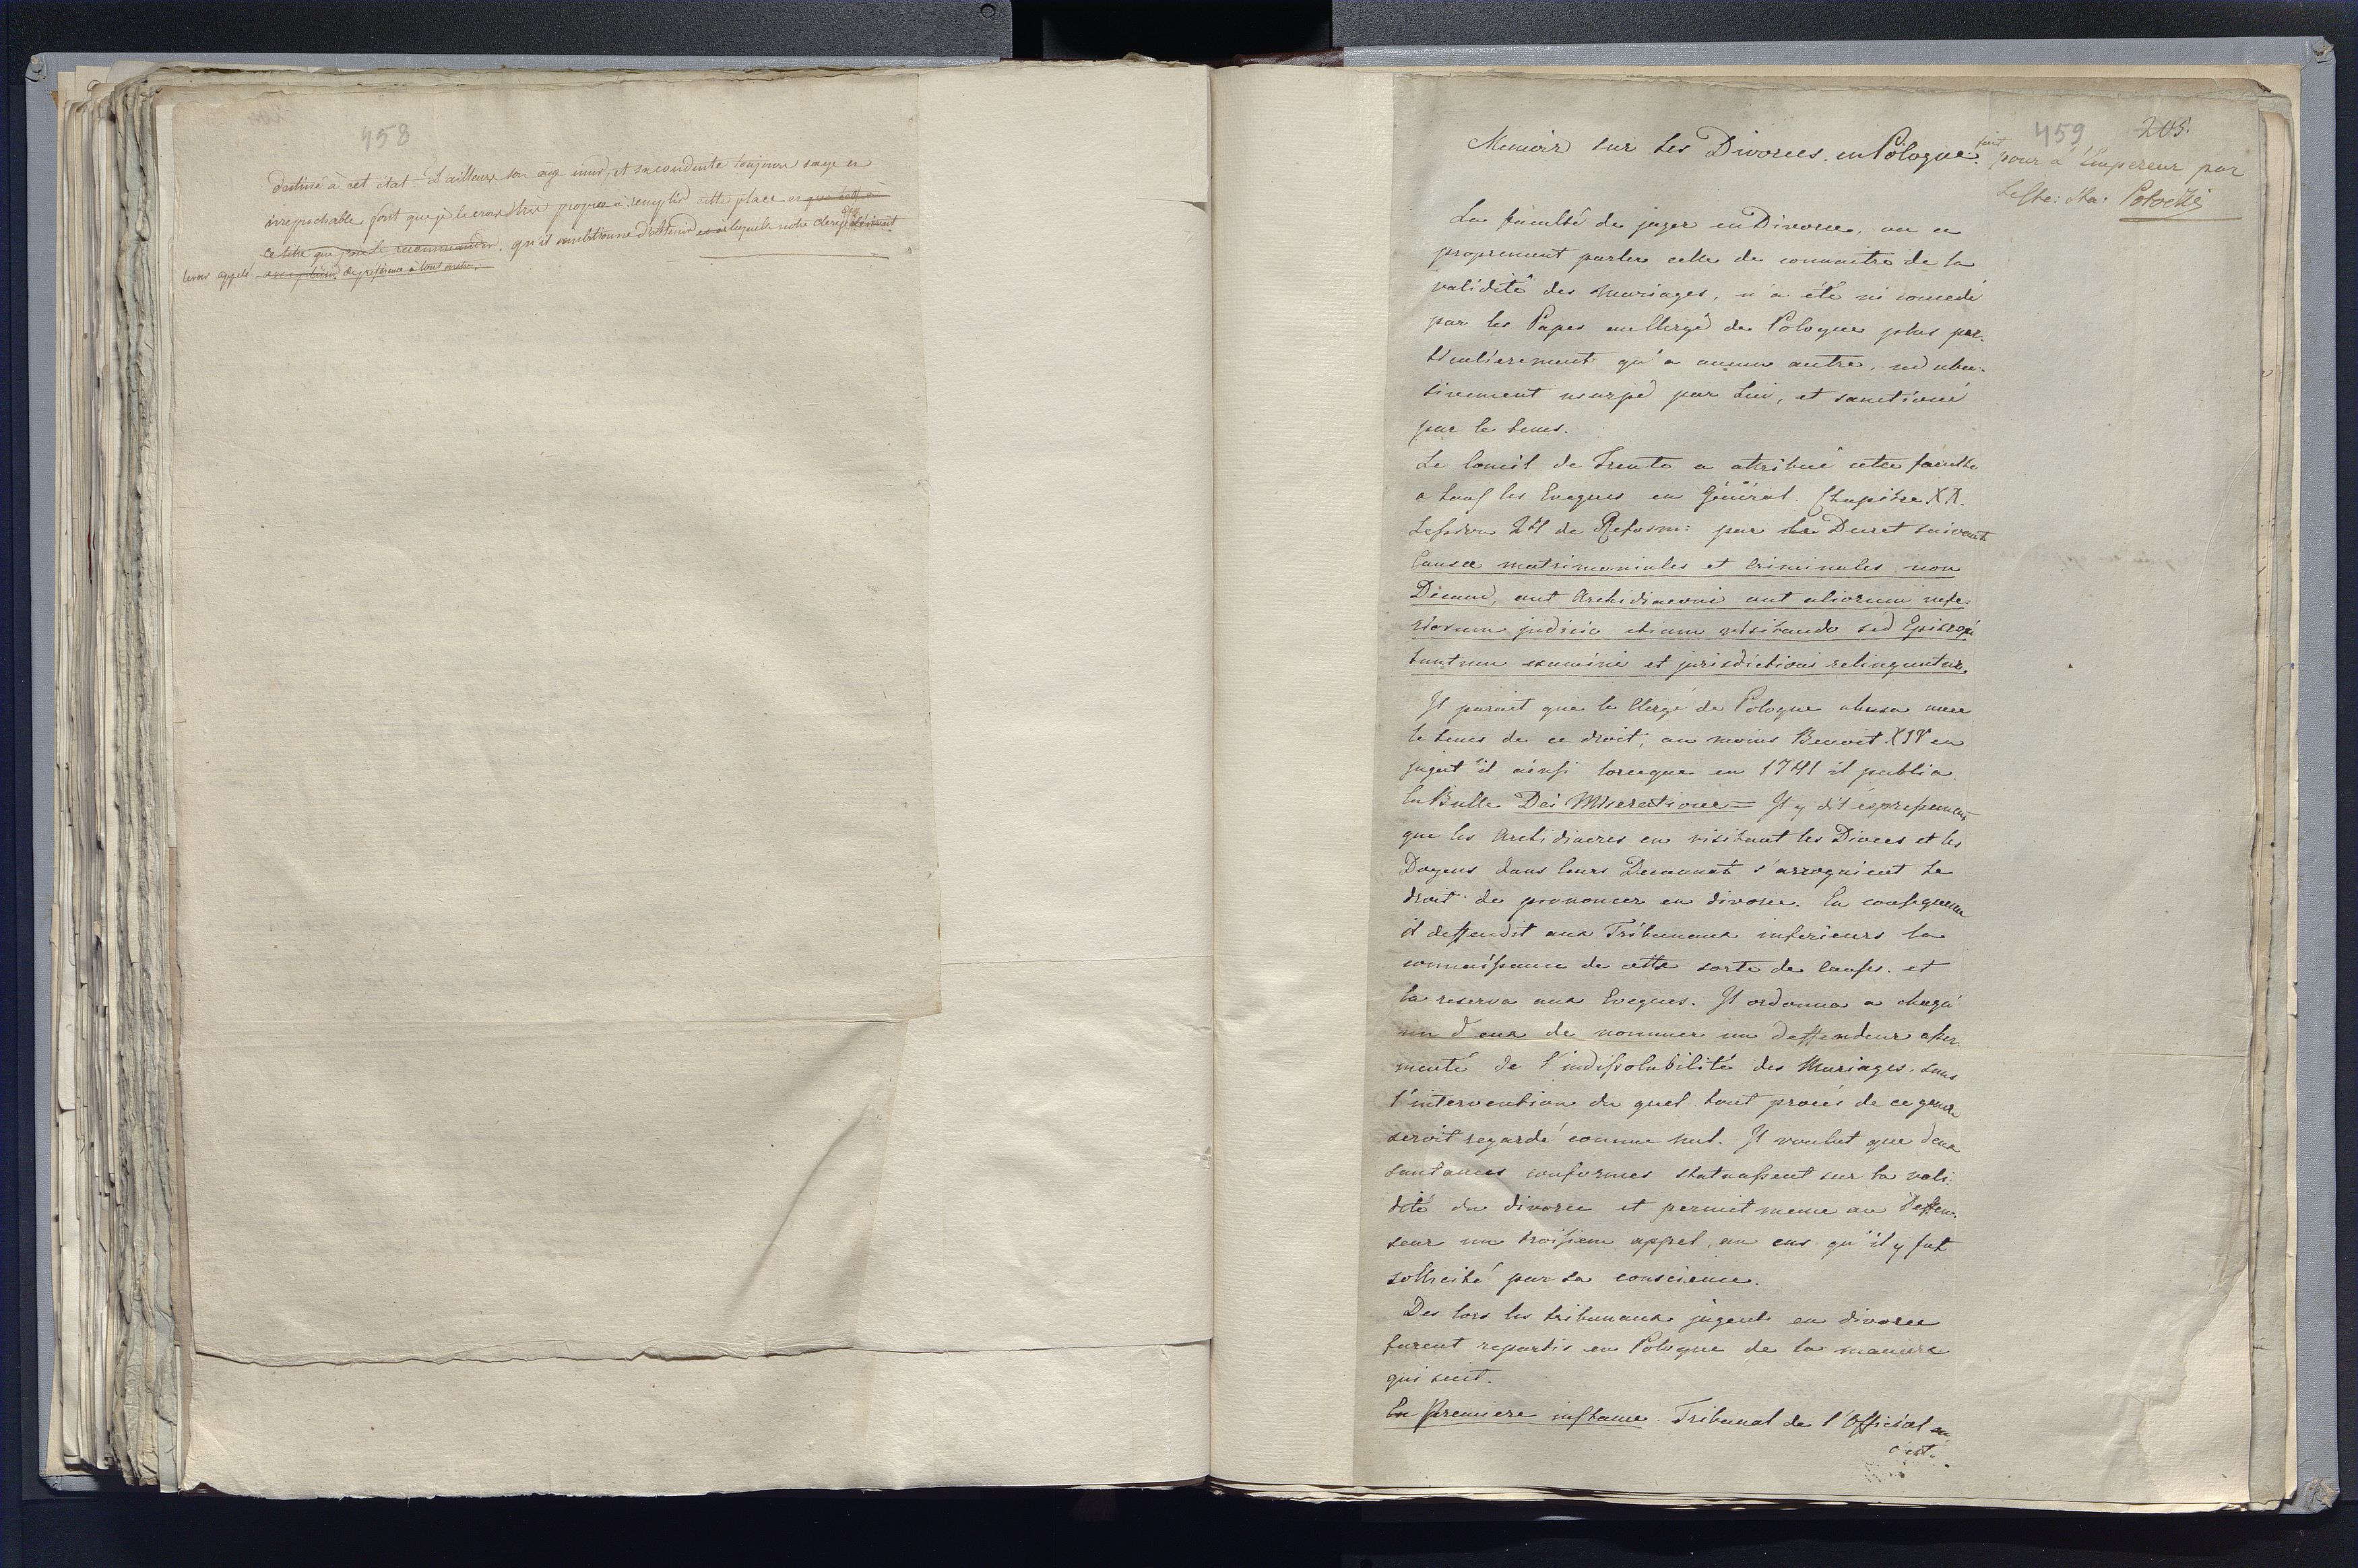 458
destiné à cet état. D'ailleurs son age mur, et sa conduite toujours sage et
irreprochable font que je le crois très propre à remplir cette place et que
ce titre que j'ose le recommander. qu'il ambitionne d'obtenir et à laquelle notre clergé désirait
le voir appelé de préférence à tout autre.
459 205.
Memoir sur les Divorces en Pologne fait pour l'Empereur par
le Cte: Sta: Potocki
La faculté de juger en Divorce, ou a
proprement parler celle de connaitre de la
validité des Mariages, n'a été ni concedé
par les Papes au Clergé de Pologne plus par-
ticulierement qu'a aucun autre, ni abu-
sivement usurpé par Lui, et sanctioné
par le tems.
Le Concil de Trente a attribué cette faculté
a tous les Eveques en Général. Chapitre XX.
Session 24 de Reform: par le Decret suivant
Causæ matrimoniales et Criminales non
Decani, aut Archidiaconi aut aliorum infe-
riorum judicio etiam visitando sed Episcopi
tantum examini et jurisdictioni relinquntur.
Il parait que le Clergé de Pologne abusa avec
le tems de ce droit; au moins Benoit XIV en
jugeat il ainsi lorsque en 1741 il publia
la Bulle Dei Miseratione = Il y dit expressement
que les Archidiacres en visitant les Dioces et les
Doyens dans leurs Decannats s'arrogaient le
droit de prononcer en divorce. En consequence
il deffendit aux Tribunaux inferieurs la
connaissance de cette sorte de causes. et
la reserva aux Eveques. Il ordonna a chaqu'
un d'eux de nommer un deffendeur asser-
menté de l'indissolubilité des Mariages, sans
l'intervention du quel tout procés de ce genre
seroit regardé comme nul. Il voulut que deux
santances conformes statuassent sur la vali-
dité du divorce et permit meme au Deffen-
seur un troisiem appel, au cas qu'il y fut
sollicité par sa conscience.
Des lors les tribunaux jugents en divorce
furent repartis en Pologne de la maniere
qui suit.
En premiere instance. Tribunal de l'Official ou
c'est.